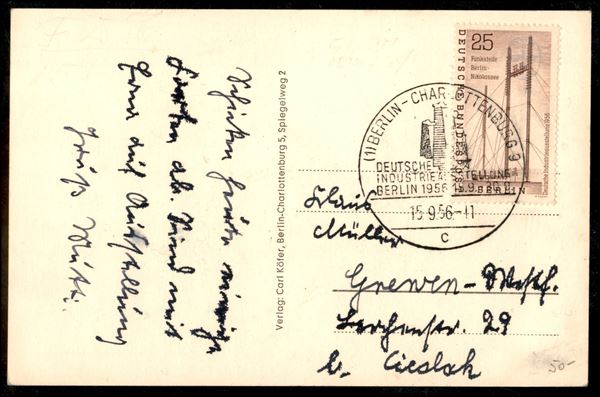 Schicken heute einige
Karten ab. Sind mit
Erna auf Ausstellung
Gruß Mutti.
Verlag: Carl Köfer, Berlin-Charlottenburg 5, Spiegelweg 2
25
Funkstelle
Berlin-
Nikolassee
DEUTSCHE BUNDESPOST
BERLIN
(1) BERLIN-CHARLOTTENBURG 9
DEUTSCHE
INDUSTRIE AUSSTELLUNG
BERLIN 1956 15.9.
15.9.56.-11
c
Klaus
Müller
Greven-Westf.
Lerchenstr. 29
b. Cieslak
50-